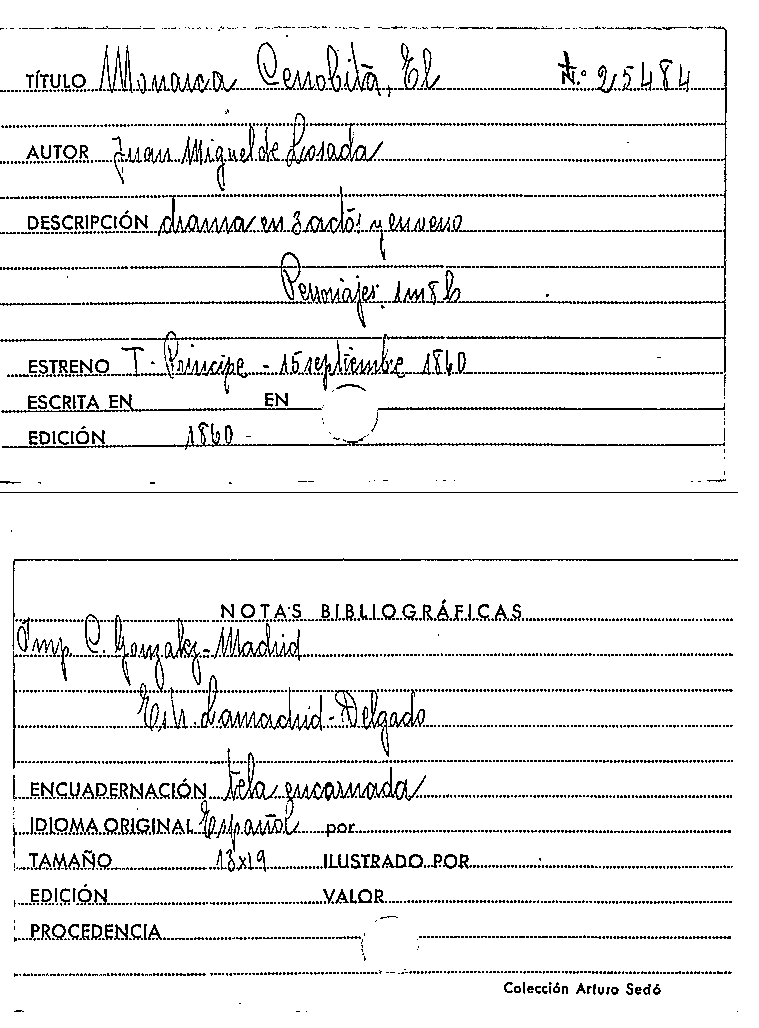 TÍTULO Monarca Cenobita, El N.º 25484
AUTOR Juan Miguel de Losada
DESCRIPCIÓN drama en 3 actos y en verso
Personajes 1m 8h
ESTRENO T. Principe - 15 septiembre 1860
ESCRITA EN EN
EDICIÓN 1860 -
NOTAS BIBLIOGRÁFICAS
Imp C. Gonzalez - Madrid
Estr. Lamadrid - Delgado
ENCUADERNACIÓN tela encarnada
IDIOMA ORIGINAL Español por
TAMAÑO 13x19 ILUSTRADO POR
EDICIÓN VALOR
PROCEDENCIA
Colección Arturo Sedó